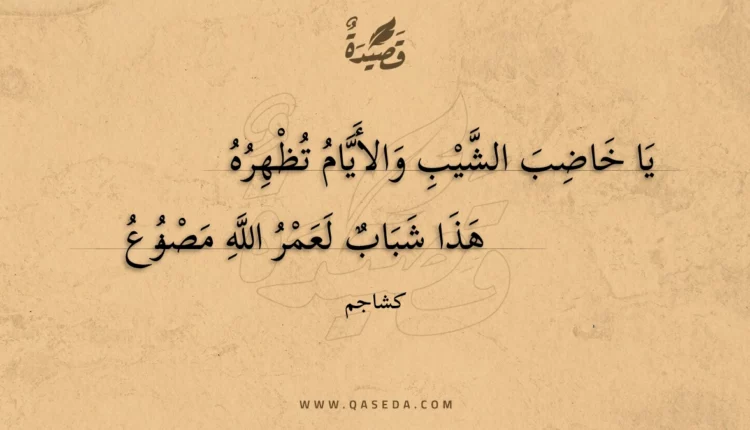 قَصِيدَةٌ
يَا خَاضِبَ الشَّيْبِ وَالأَيَّامُ تُظْهِرُهُ
هَذَا شَبَابٌ لَعَمْرُ اللَّهِ مَصْنُوعُ
كشاجم
WWW.QASEDA.COM